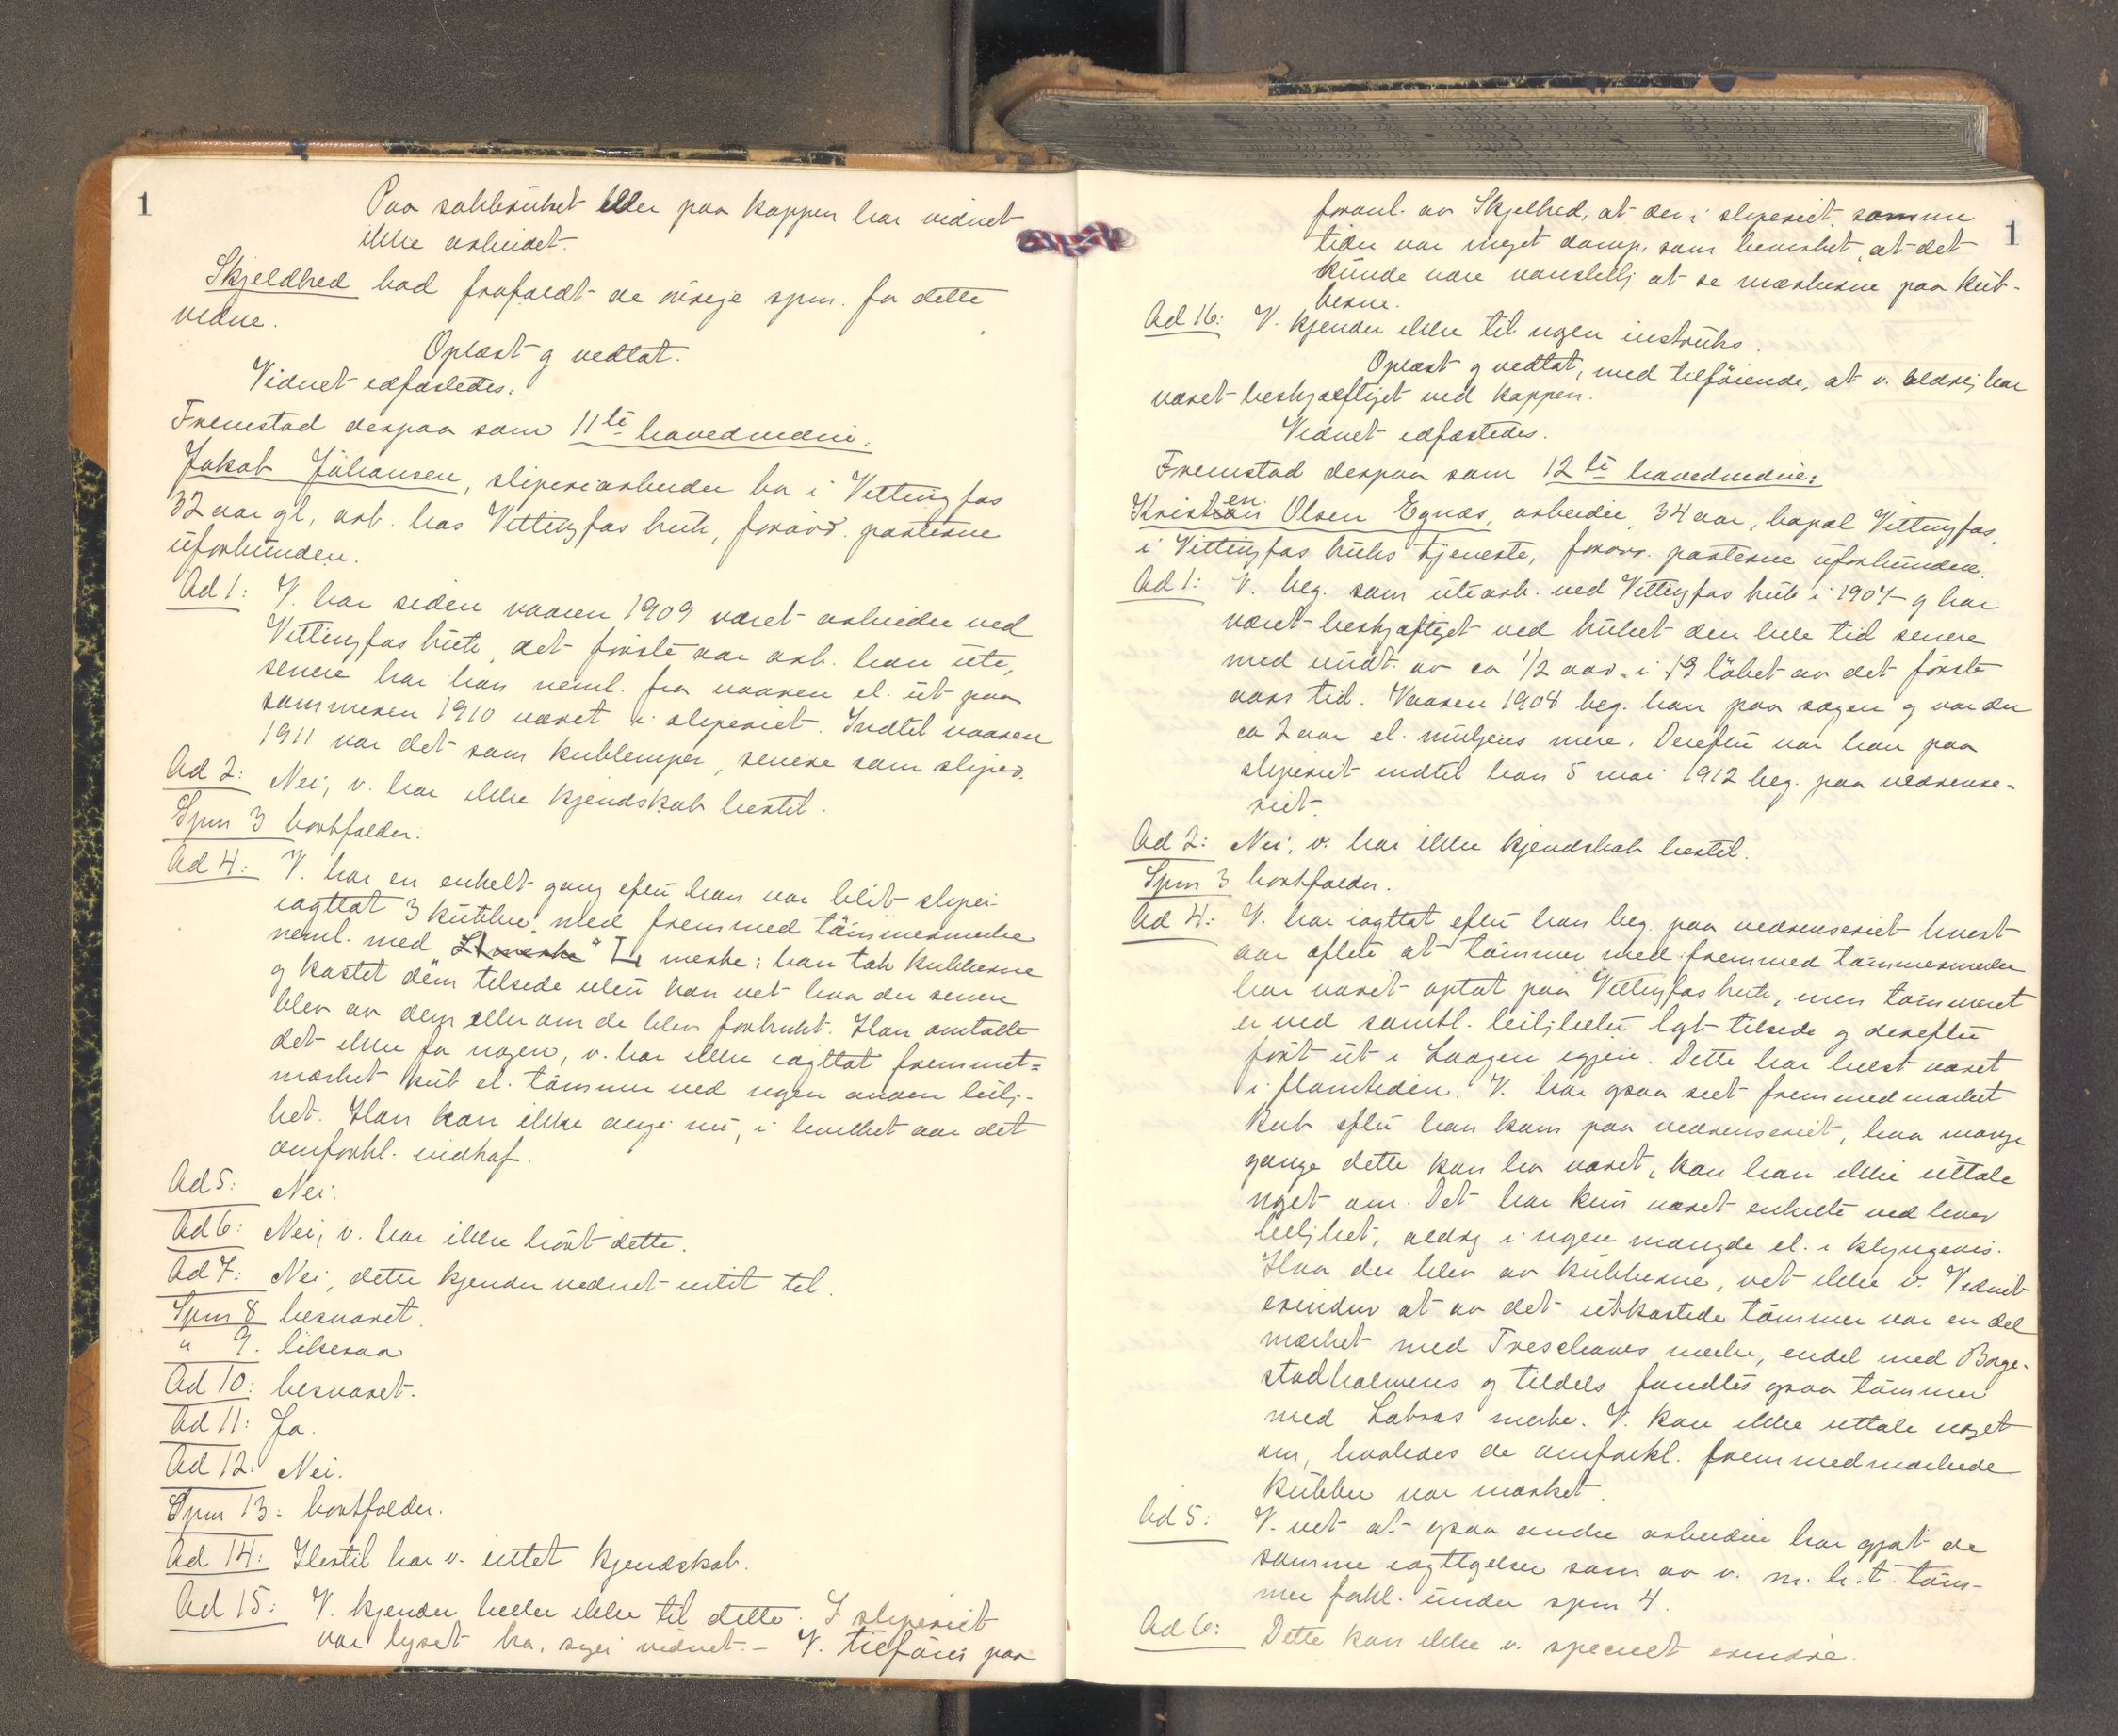 1
Paa sakbruket eller paa kappen har vidnet
ikke arbeidet.
Skjeldbred bad frafaldt de øvrige spm. for dette
vidne.
Oplæst og vedtat.
Vidnet edfæstedes.
Fremstod derpaa som 11te hovedvidne:
Jakob Johansen, sliperiarbeider bor i Vittingfos
32 aar gl, arb. hos Vittingfos bruk, forøvr. parterne
uforbunden.
Ad 1: V. har siden vaaren 1909 været arbeider ved
Vittingfos bruk, det første aar arb. han ute,
senere har han neml. fra vaaren el. ut paa
sommeren 1910 været i sliperiet. Indtil vaaren
1911 var det som kublemper, senere som sliper.
Ad 2: Nei, v. har ikke kjendskab hertil.
Spm 3 bortfalder.
Ad 4: V. har en enkelt gang efter han var blit sliper
iagttat 3 kubber med fremmed tømmermerke
neml. med merke; han tok kubberne
og kastet dem tilside uten han vet hva der senere
blev av dem eller om de blev forbrukt. Han omtalte
det ikke for nogen, v. har ikke iagttat fremmet=
merket kub el. tømmer ved nogen anden leilj-
het. Han kan ikke angi nu, i hvilket aar det
omforkl. indtraf.
Ad 5: Nei.
Ad 6: Nei, v. har ikke hørt dette.
Ad 7: Nei, dette kjender vidnet intet til.
Spm 8 besvaret.
" 9. likesaa
Ad 10: besvaret.
Ad 11: Ja.
Ad 12: Nei.
Spm 13: bortfalder.
Ad 14: Hertil har v. intet kjendskab.
Ad 15: V. kjender heller ikke til dette. I sliperiet
var lyset bra, sier vidnet. - V. tilføier paa
1
foranl. av Skjelbred, at der i sliperiet somme
tider var meget damp, som bevirket, at det
kunde være vanskelig at se merkerne paa kub-
berne.
Ad 16: V. kjender ikke til nogen instruks.
Oplæst og vedtat, med tilføiende, at v. aldrig har
været beskjæftiget ved kappen.
Vidnet edfæstedes.
Fremstod derpaa som 12te hovedvidne:
Kristen Olsen Egnæs, arbeider, 34 aar, bopæl Vittingfos,
i Vittingfos bruks tjeneste, forøvr. parterne uforbunden.
Ad 1: V. beg. som utearb. ved Vittingfos bruk i 1907 og har
været beskjæftiget ved bruket den hele tid senere
med undt. av ca 1/2 aar. i løbet av det første
aars tid. Vaaren 1908 beg. han paa sagen og var der
ca 2 aar el. muligens mere. Derefter var han paa
sliperiet indtil han 5 mai 1912 beg. paa vedrense-
riet.
Ad 2: Nei, v. har ikke kjendskab hertil.
Spm 3 bortfalder.
Ad 4: V. har iagttat efter han beg. paa vedrenseriet hvert
aar oftere at tømmer med fremmed tømmermerke
har været optat paa Vittingfos bruk, men tømmeret
er ved samtl. leiligheter lagt tilside og derefter
ført ut i Laagen igjen. Dette har helst været
i flomtiden. V. har ogsaa seet fremmedmerket
kub efter han kom paa vedrenseriet, hvor mange
gange dette kan ha været, kan han ikke uttale
noget om. Det har kun været enkelte ved hver
leilighet, aldrig i nogen mængde el. i klyngevis.
Hvor der blev av kubberne, vet ikke v. Vidnet
erindrer at av det utkastede tømmer var en del
merket med Treschows merke, endel med Borge-
stadholmens og tildels fandtes ogsaa tømmer
med Labros merke. V. kan ikke uttale noget
om, hvorledes de omforkl. fremmedmerkede
kubber var merket.
Ad 5: V. vet at ogsaa andre arbeidere har gjort de
samme iagttagelser som av v. m. h. t. tøm-
mer forkl. under spm 4.
Ad 6: Dette kan ikke v. specielt erindre.